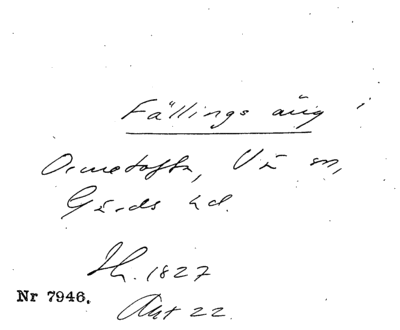 Fällings äng i
Ormatofta, Vä sn,
Gärds hd.
Jh. 1827
Nr 7946.
Akt 22.